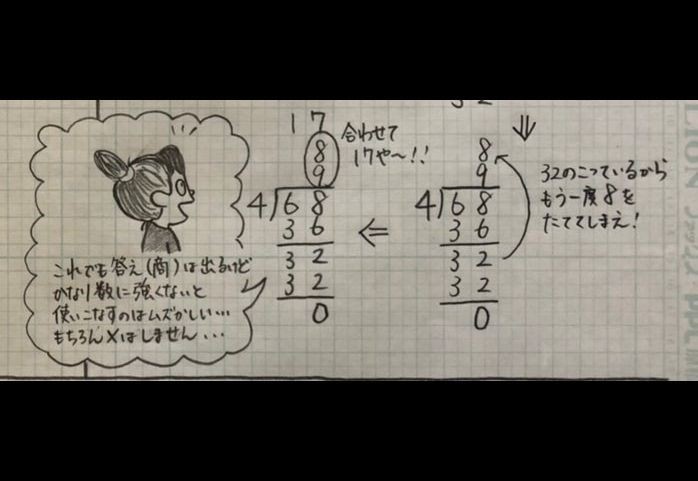 32のこっているから
もう一度8を
たててしまえ!
8
9
4)68
36
32
32
0
17
合わせて
17や〜!!
8
9
4)68
36
32
32
0
これでも答え(商)は出るけど
かなり数に強くないと
使いこなすのはムズかしい…
もちろん×はしません...